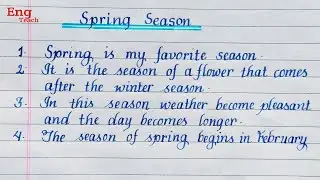 Eng
Teach
Spring Season
1. Spring is my favorite season.
2. It is the season of a flower that comes
after the winter season.
3. In this season weather become pleasant
and the day becomes longer.
4. The season of spring begins in February